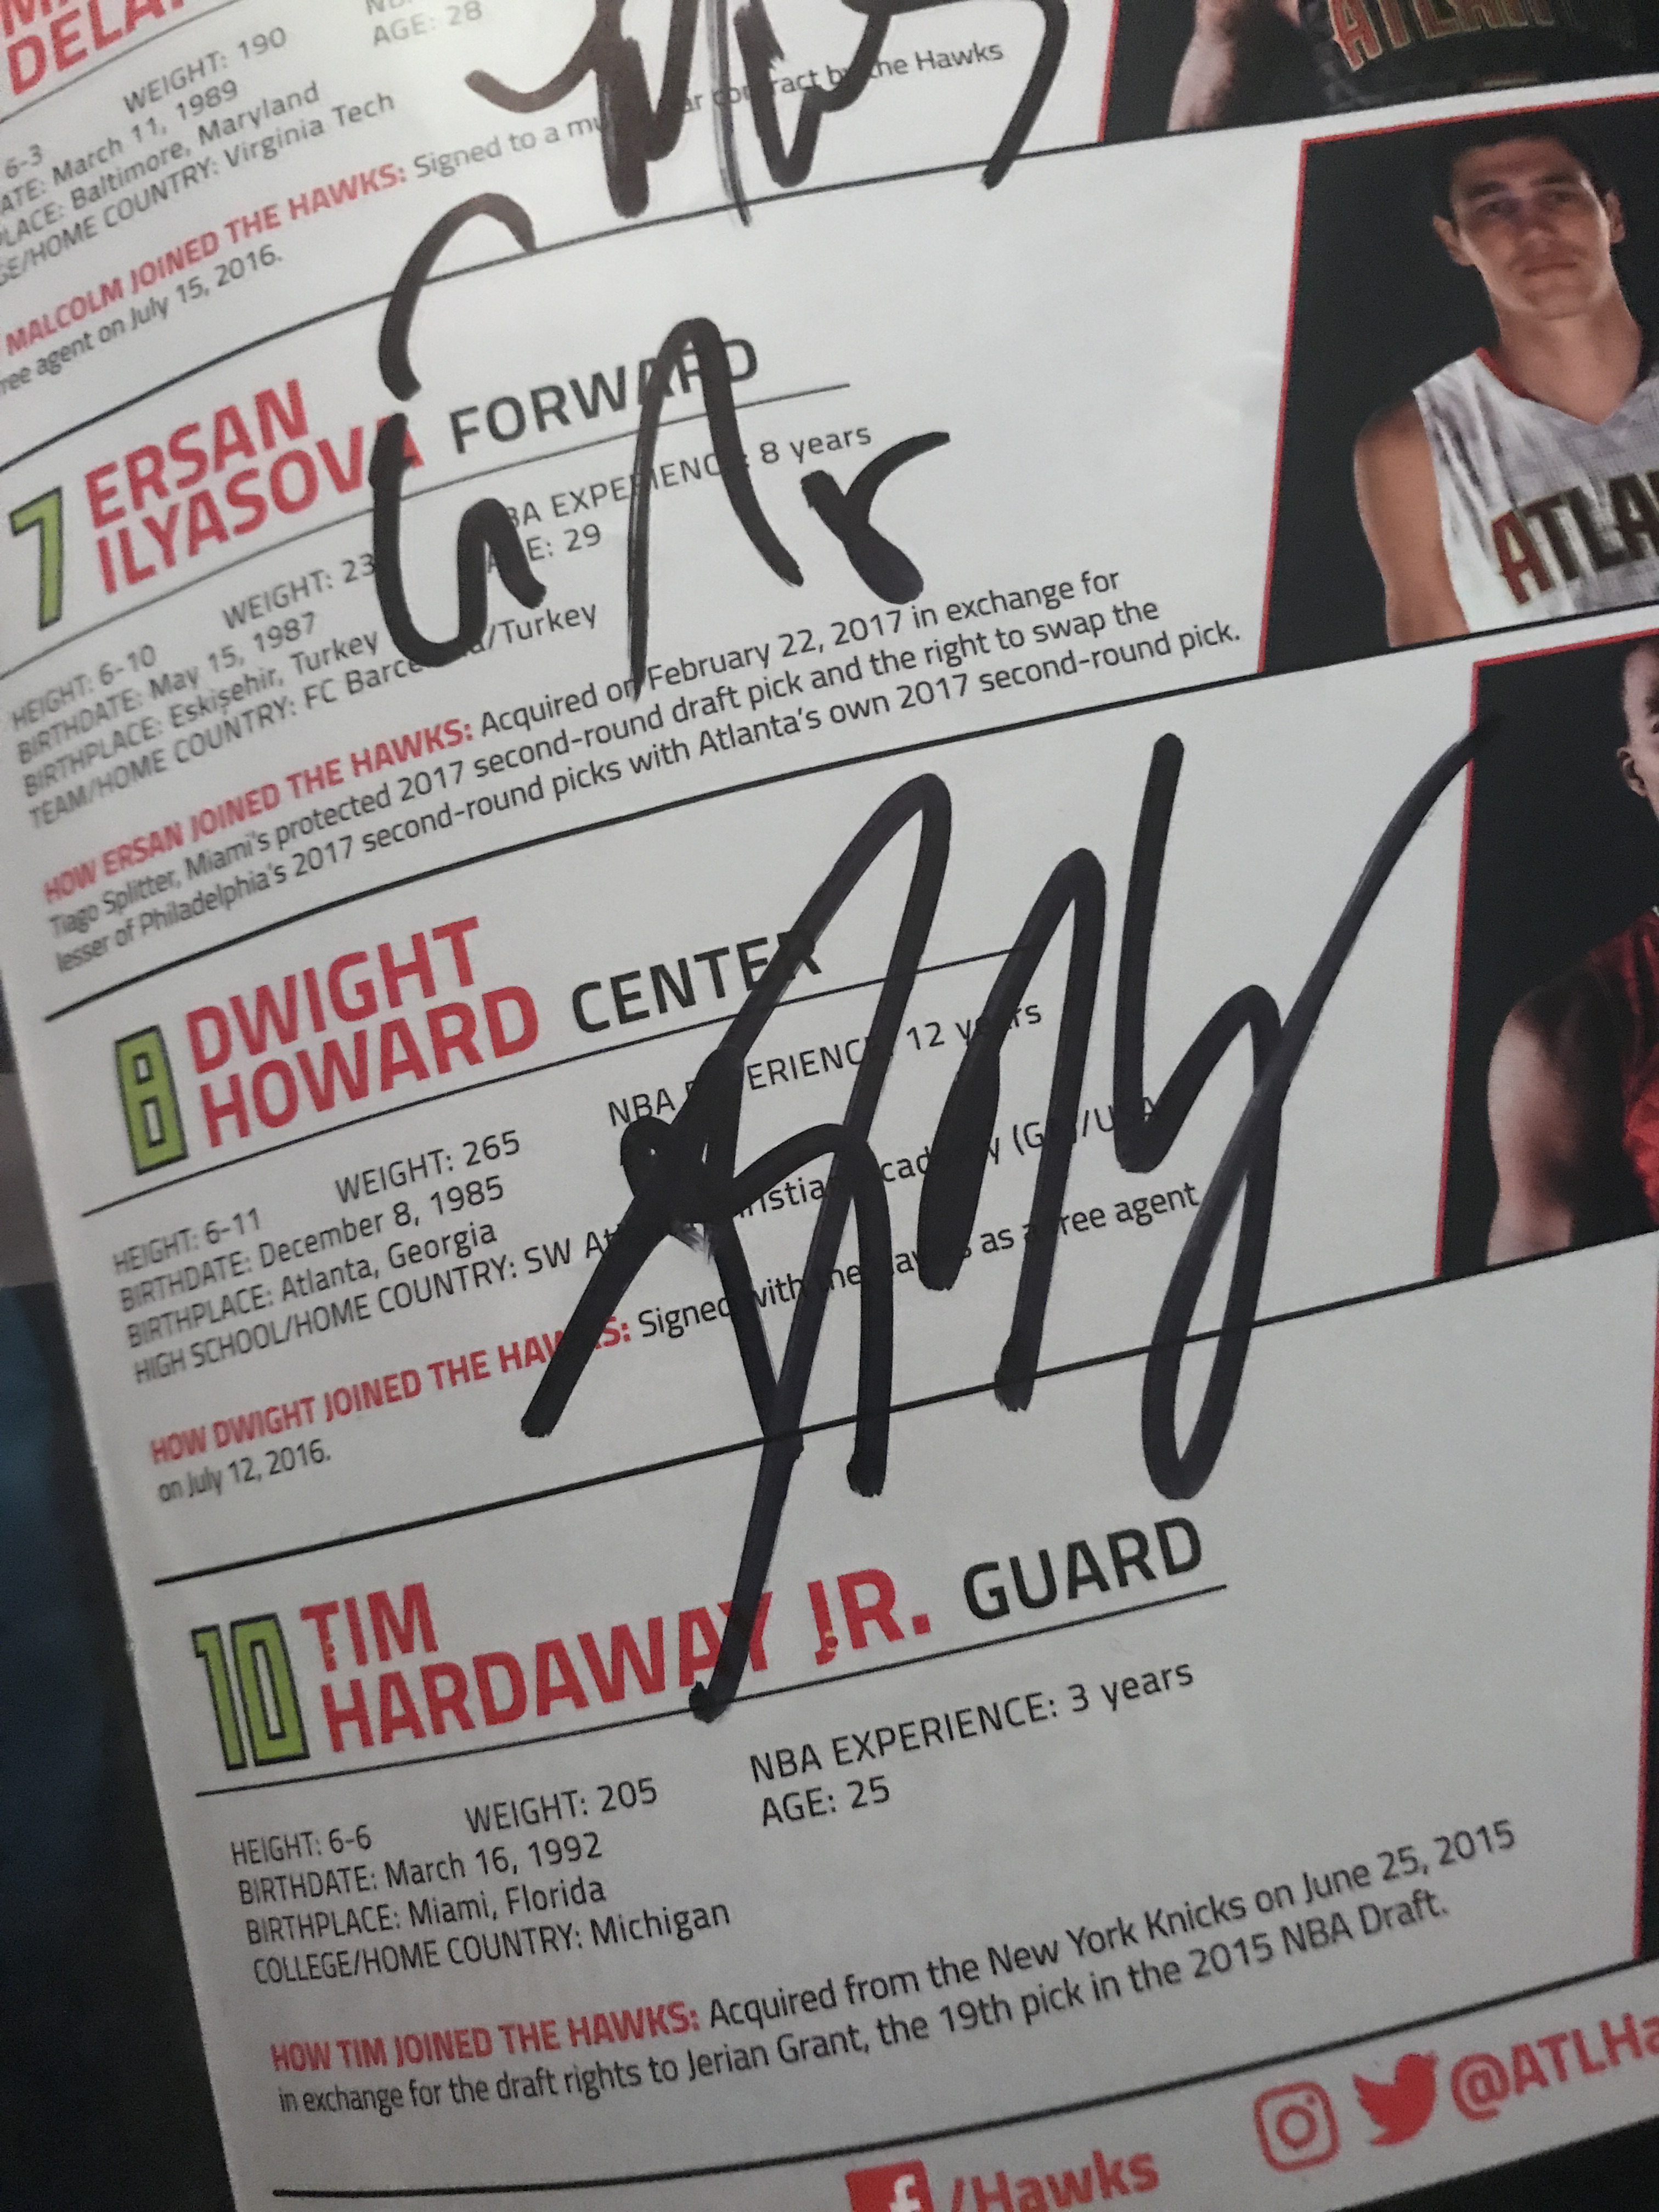 WEIGHT: 190
AGE: 28
6-3
March 11, 1989
Baltimore, Maryland
COUNTRY: Virginia Tech
MALCOLM JOINED THE HAWKS: Signed to a contract by the Hawks
agent on July 15, 2016.
7 ERSAN
ILYASOVA FORWARD
HEIGHT: 6-10 WEIGHT: EXPERIENCE: 8 years
BIRTHDATE: May 15, 1987 29
BIRTHPLACE: Eskişehir, Turkey
TEAM/HOME COUNTRY: FC /Turkey
HOW ERSAN JOINED THE HAWKS: Acquired on February 22, 2017 in exchange for
Tiago Splitter, Miami's protected 2017 second-round draft pick and the right to swap the
lesser of Philadelphia's 2017 second-round picks with Atlanta's own 2017 second-round pick.
8 DWIGHT
HOWARD CENTER
HEIGHT: 6-11 WEIGHT: 265 NBA EXPERIENCE: 12 years
BIRTHDATE: December 8, 1985
BIRTHPLACE: Atlanta, Georgia
HIGH SCHOOL/HOME COUNTRY: SW
HOW DWIGHT JOINED THE HAWKS: Signed with the Hawks as a free agent
on July 12, 2016.
10 TIM
HARDAWAY JR. GUARD
HEIGHT: 6-6 WEIGHT: 205 NBA EXPERIENCE: 3 years
BIRTHDATE: March 16, 1992 AGE: 25
BIRTHPLACE: Miami, Florida
COLLEGE/HOME COUNTRY: Michigan
HOW TIM JOINED THE HAWKS: Acquired from the New York Knicks on June 25, 2015
in exchange for the draft rights to Jerian Grant, the 19th pick in the 2015 NBA Draft.
/Hawks